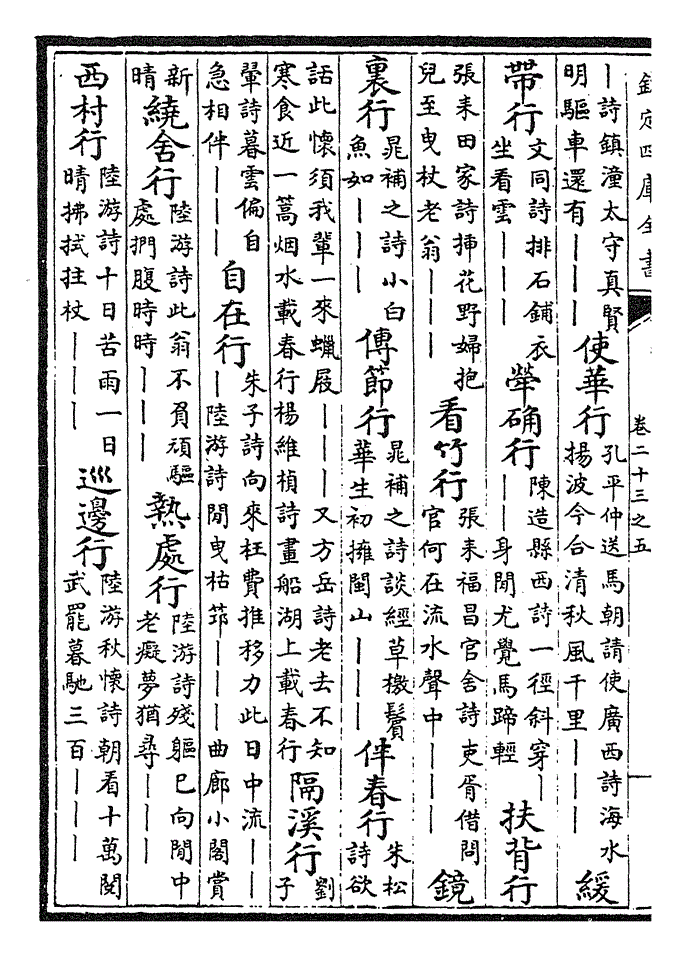 欽定四庫全書 卷二十三之五
｜詩鎮潼太守真賢明驅車還有｜｜｜使華行孔平仲送馬朝請使廣西詩海水揚波今台清秋風千里｜｜｜緩
帶行文同詩排石鋪衣坐看雲｜｜｜犖确行陳造縣西詩一徑斜穿｜｜｜身閒尤覺馬蹄輕扶背行
張耒田家詩揷花野婦抱兒至曳杖老翁｜｜｜看竹行張耒福昌官舍詩吏胥借問官何在流水聲中｜｜｜鏡
裏行晁補之詩小白魚如｜｜｜傳節行晁補之詩談經草檄鬢華生初擁閩山｜｜｜伴春行朱松詩欲
話此懷須我輩一來蠟屐｜｜｜又方岳詩老去不知寒食近一蒿烟水載春行楊維楨詩畫船湖上載春行隔溪行劉子
翬詩暮雲偏自急相伴｜｜｜自在行朱子詩向來枉費推移力此日中流｜｜｜陸游詩閒曳枯筇｜｜｜曲廊小閣賞
新晴繞舍行陸游詩此翁不負頑軀處捫腹時時｜｜｜熱處行陸游詩殘軀已向閒中老癡夢猶尋｜｜｜
西村行陸游詩十日苦雨一日晴拂拭拄杖｜｜｜巡邊行陸游秋懷詩朝看十萬閱武罷暮馳三百｜｜｜